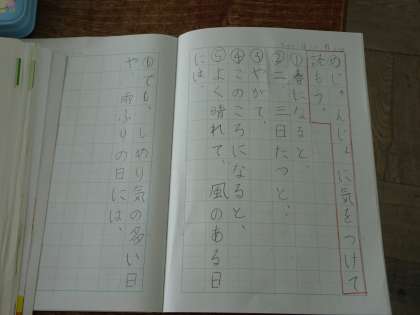 めじゅんじょ に気をつけて
読もう。
①春になると、
②二、三日たつと、
③やがて、
④このころになると、
⑤よく晴れて、風のある日
には、
⑥でも、しめり気の多い日
や、雨ふりの日には、